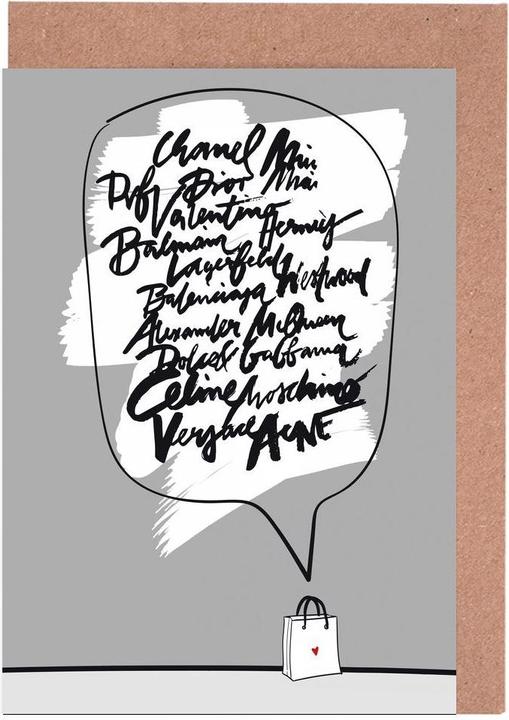 Chanel Miu
DVF Dior Miu
Valentino
Balmain Hermes
Lagerfeld
Balenciaga Westwood
Alexander McQueen
Dolce & Gabbana
Celine Moschino
Versace ACNE